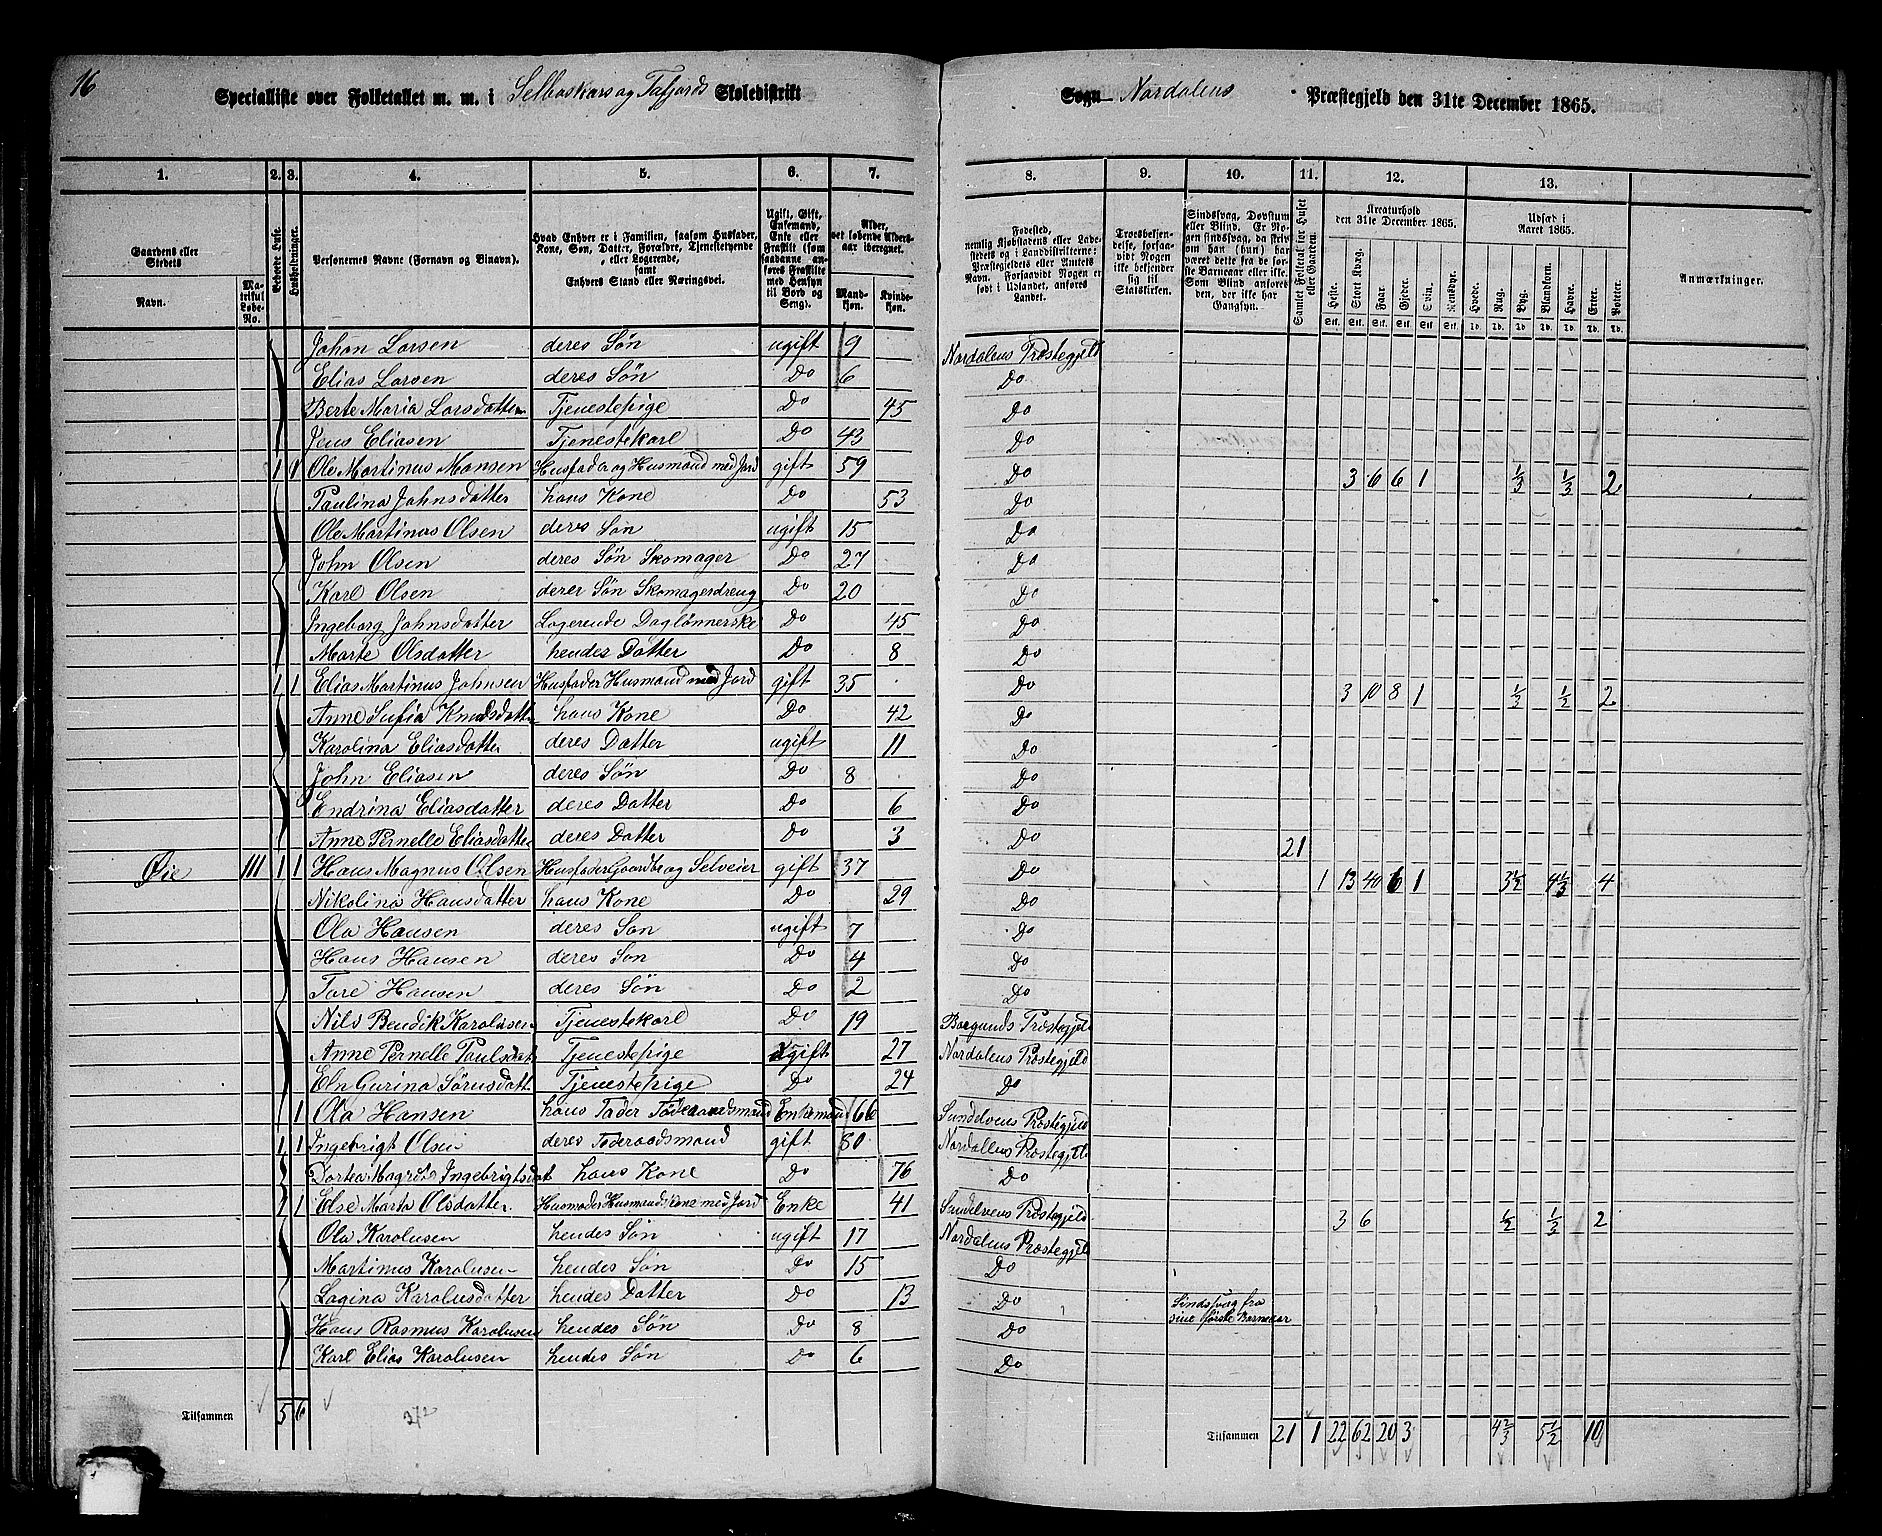 16
Specialliste over Folketallet m. m. i Selboskars og Tafjords Skoledistrikt
Sogn Nordalens Præstegjeld den 31te December 1865.
1. 2. 3. 4. 5. 6. 7. 8. 9. 10. 11. 12. 13.
Gaardens eller Stedets
Navn.
Matrikul Løbe-No.
Beboede Huse.
Husholdninger.
Personernes Navne (Fornavn og Binavn).
Hvad Enhver er i Familien, saasom Husfader, Kone, Søn, Datter, Forældre, Tjenestetyende, eller Logerende, samt
Enhvers Stand eller Næringsvei.
Ugift, Gift, Enkemand, Enke eller Fraskilt (som saadanne anføres Fraskilte med Hensyn til Bord og Seng).
Alder, det løbende Aldersaar iberegnet.
Mandkøn.
Kvindekøn.
Fødested, nemlig Kjøbstadens eller Ladestedets og i Landdistrikterne: Præstegjeldets eller Amtets Navn. Forsaavidt Nogen er født i Udlandet, anføres Landet.
Troesbekjendelse, forsaavidt Nogen ikke bekjender sig til Statskirken.
Sindssvag, Døvstum eller Blind. Er Nogen sindssvag, da skrives om han (hun) har været dette fra de første Barneaar eller ikke. Som Blind anføres den, der ikke har Gangsyn.
Samlet Folketal for Huset eller Gaarden.
Kreaturhold den 31te December 1865.
Heste. Stort Kvæg. Faar. Gjeder. Svin. Rensdyr.
Udsæd i Aaret 1865.
Hvede. Rug. Byg. Blandkorn. Havre. Erter. Poteter.
Anmærkninger.
Johan Larsen deres Søn ugift 9 Nordalens Præstegjeld
Elias Larsen deres Søn Do 6 Do
Berte Maria Larsdatter Tjenestepige Do 45 Do
Jens Eliasen Tjenestekarl Do 43 Do
1 1 Ole Martinus Monsen Husfader og Husmand med Jord gift 59 Do 3 6 6 1 1/3 1/3 2
Paulina Johnsdatter hans Kone Do 53 Do
Ole Martinus Olsen deres Søn ugift 15 Do
John Olsen deres Søn Skomager Do 27 Do
Karl Olsen deres Søn Skomagerdreng Do 20 Do
Ingeborg Johnsdatter Logerende Daglønnerske Do 45 Do
Marte Olsdatter hendes Datter Do 8 Do
1 1 Elias Martinus Johnsen Husfader Husmand med Jord gift 35 Do 3 10 8 1 1/3 1/2 2
Anne Sufia Knudsdatter hans Kone Do 42 Do
Karolina Eliasdatter deres Datter ugift 11 Do
John Eliasen deres Søn Do 8 Do
Endrina Eliasdatter deres Datter Do 6 Do
Anne Pernelle Eliasdatter deres Datter Do 3 Do 21
Øie 111 1 1 Hans Magnus Olsen Husfader Gaardbr og Selveier gift 37 Do 1 13 40 6 1 3 1/2 4 1/3 4
Nikolina Hansdatter hans Kone Do 29 Do
Ola Hansen deres Søn ugift 7 Do
Hans Hansen deres Søn Do 4 Do
Tore Hansen deres Søn Do 2 Do
Nils Bendik Karolusen Tjenestekarl Do 19 Borgunds Præstegjeld
Anne Pernelle Paulsdat Tjenestepige ugift 27 Nordalens Præstegjeld
Eln Gurina Sørnsdatt Tjenestepige Do 24 Do
1 Ola Hansen hans Fader Føderaadsmand Enkemand 66 Sundelvens Præstegjeld
1 1 Ingebrigt Olsen deres Føderaadsmand gift 80 Nordallens Præstegjeld
Dortea Magrete Ingebrigtsdat hans Kone Do 76 Do
1 1 Else Marta Olsdatter Husmoder Husmandskone med Jord Enke 41 Sundelvens Præstegjeld 3 6 1/2 1/2 2
Ola Karolusen hendes Søn ugift 17 Nordalens Præstegjeld
Martinus Karolusen hendes Søn Do 15 Do
Lagina Karolusdatter hendes Datter Do 13 Do Sindssvag fra sine første Barneaar
Hans Rasmus Karolusen hendes Søn Do 8 Do
Karl Elias Karolusen hendes Søn Do 6 Do
Tilsammen 5 6
Tilsammen 21 1 22 62 20 3 4 2/3 5 1/2 10